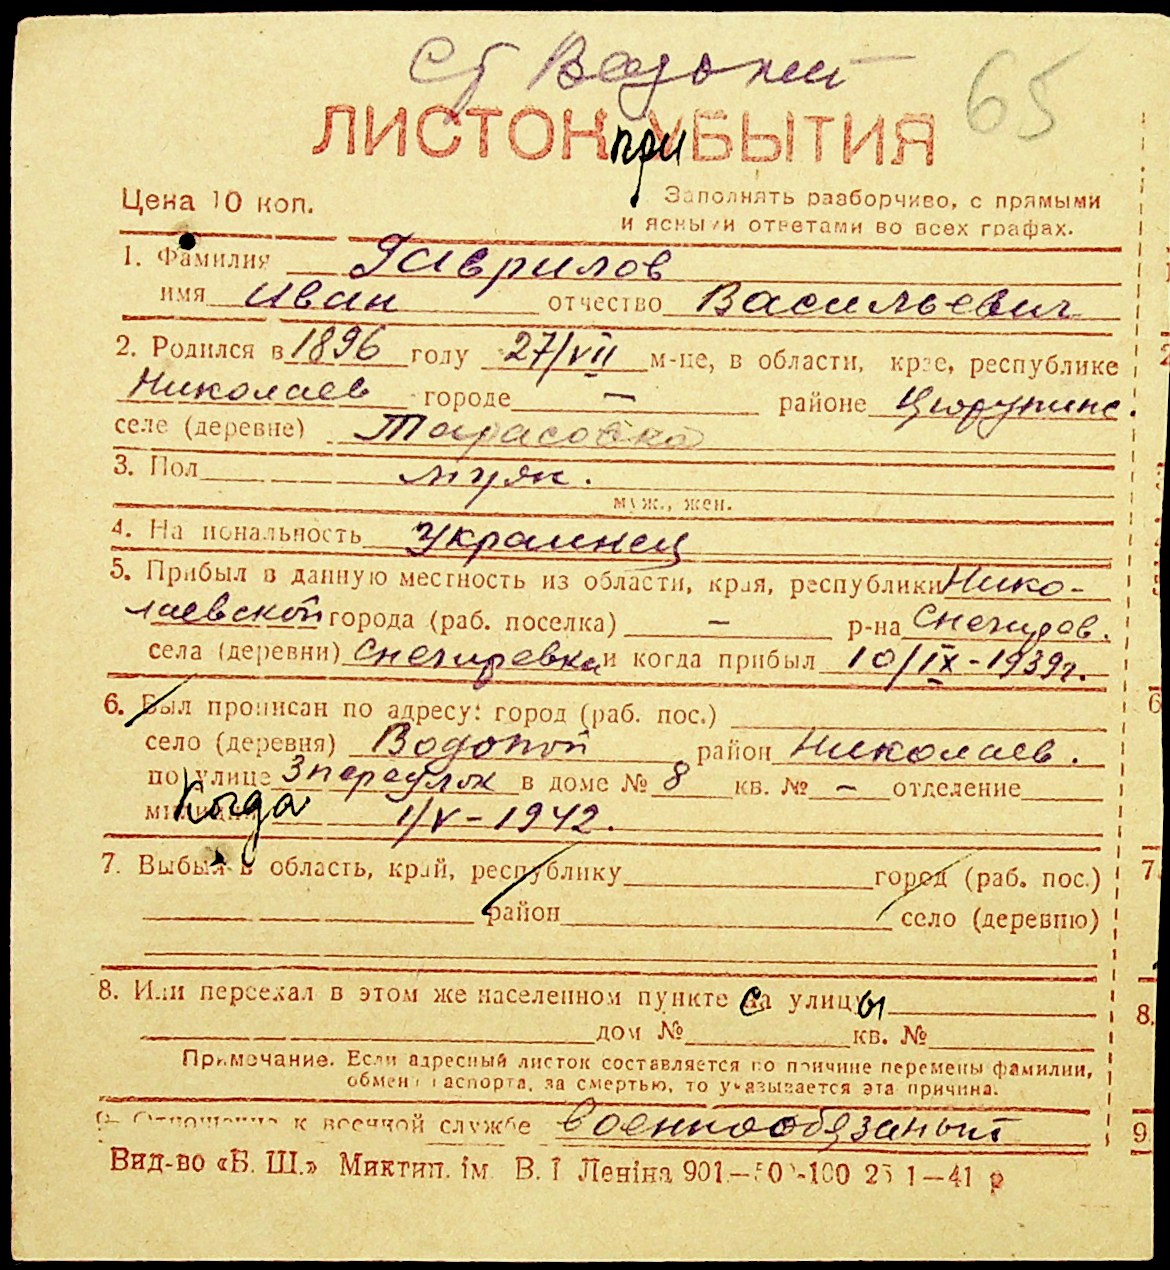 Ст Водопий
65
ЛИСТОК при УБЫТИЯ
Цена 10 коп.
Заполнять разборчиво, с прямыми
и ясными ответами во всех графах.
1. Фамилия Гаврилов
имя Иван отчество Васильевич
2. Родился в 1896 году 27/VII м-це, в области, крае, республике
Николаев городе — районе Цюрупинс.
селе (деревне) Тарасовка
3. Пол муж.
муж., жен.
4. Национальность Украинец
5. Прибыл в данную местность из области, края, республики Нико-
лаевской города (раб. поселка) — р-на Снегиров.
села (деревни) Снегиревка и когда прибыл 10/IX-1939г.
6. Был прописан по адресу: город (раб. пос.)
село (деревня) Водопой район Николаев.
по улице 3 переулок в доме № 8 кв. № — отделение
милиции когда 1/V-1942.
7. Выбыл в область, край, республику город (раб. пос.)
район село (деревню)
8. Или переехал в этом же населенном пункте с на улицы
дом № кв. №
Примечание. Если адресный листок составляется по причине перемены фамилии,
обмена паспорта, за смертью, то указывается эта причина.
9. Отношение к военной службе военнообязаный
Вид-во «Б. Ш.» Миктип. ім. В. І Леніна 901—50 -100 25 1—41 р
2
6
7.
8.
9